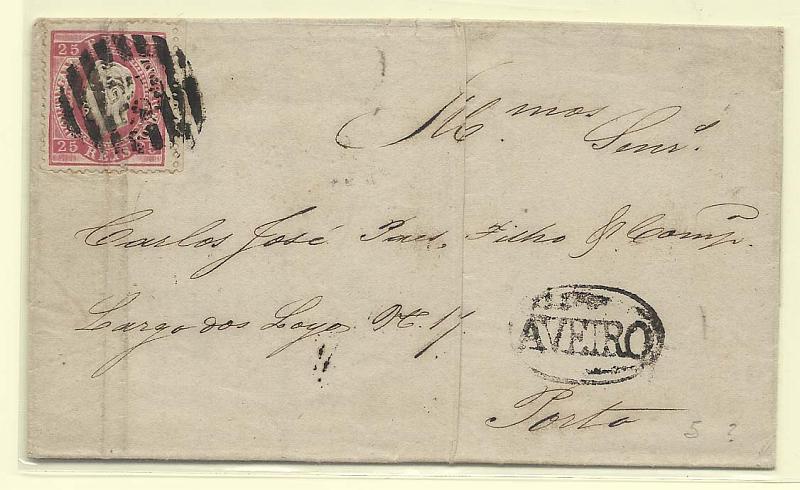 25 25
25 REIS 25
Ill.mos Senr.s
Carlos José Paes, Filho & Comp.
Largo dos Loyos N. 17
AVEIRO
Porto
5 ?